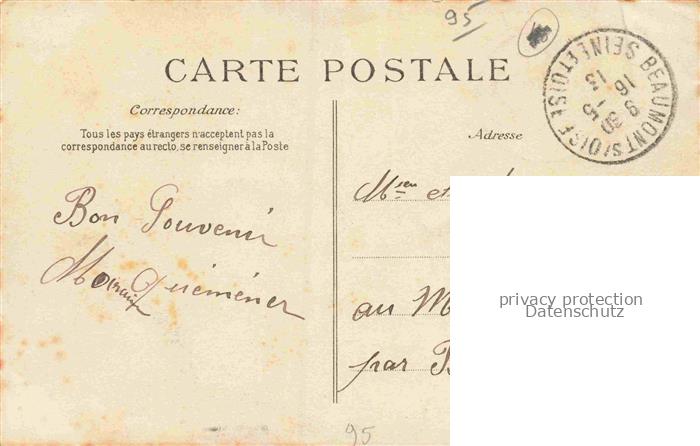 95
CARTE POSTALE
Correspondance:
Tous les pays étrangers n'acceptent pas la
correspondance au recto, se renseigner à la Poste
Adresse
BEAUMONT S/OISE
SEINE ET OISE
Bon Souvenir
Quéméner
au M
par
95
privacy protection
Datenschutz